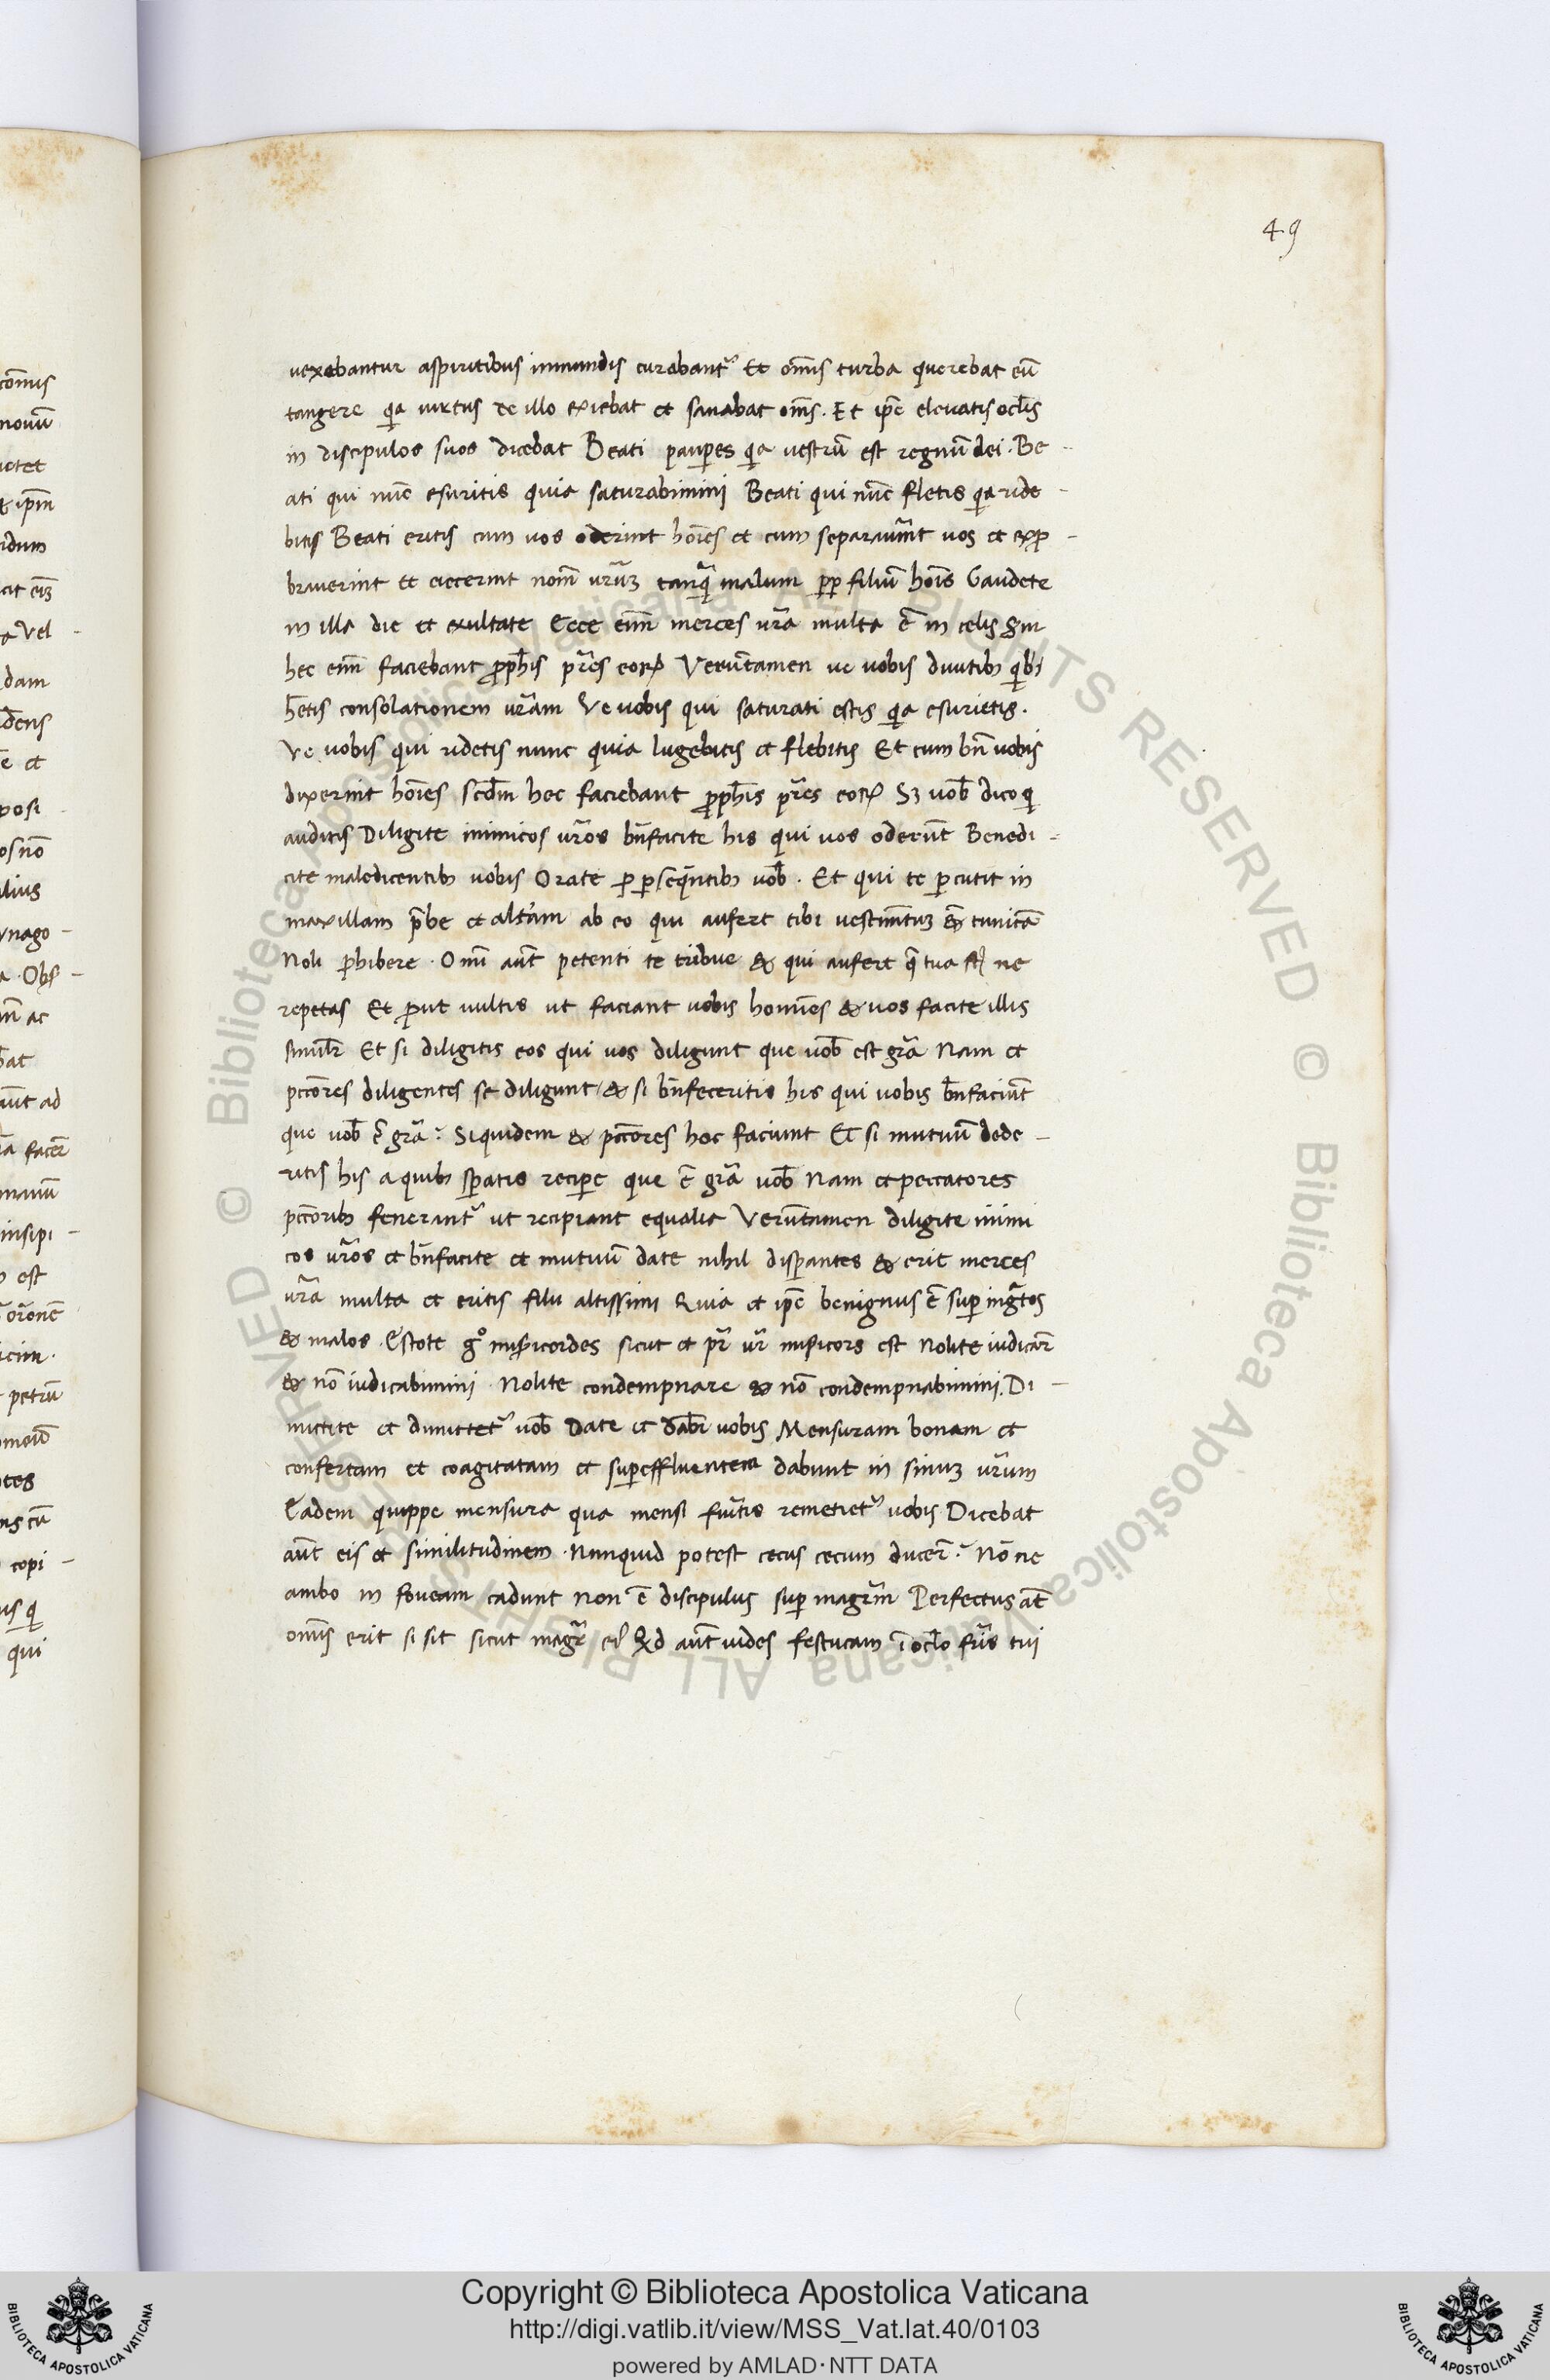 49
uexabantur aspiritibus inmundis curabant᷑ Et om̅is turba querebat eu̅
tangere qa uirtus de illo exiebat et sanabat om̅s. Et ip̅e eleuatis ocl̅is
in discipulos suos dicebat Beati paup̲es qa uestru̅ est regnu̅ dei. Be-
ati qui nu̅c esuritis quia saturabimini Beati qui nu̅c fletis qa ride-
bitis Beati eritis cum uos oderint ho̅ies et cum separau̅int uos et exp̱o-
brauerint et eiecerint nom̅ ur̅uꝫ tanqa̅ malum pp̲ filiu̅ ho̅is Gaudete
in illa die et exultate Ecce eni̅m merces ur̅a multa e̅ in celis Sm
hec eni̅m faciebant p̱ph̅is pr̅es eoꝝ Veru̅tamen ue uobis diuitib; qi h̅
h̅etis consolationem ur̅am Ve uobis qui saturati estis qa esurietis.
Ve uobis qui ridetis nunc quia lugebitis et flebitis Et cum bn̅ uobis
dixerint ho̅ies scd̅m hec faciebant p̱ph̅is pr̅es eoꝝ Sꝫ uob̅ dico qi
auditis Diligite inimicos ur̅os bn̅facite his qui uos oderu̅t Benedi-
cite maledicentib; uobis Orate p̱ p̲seque̅ntib; uob̅. Et qui te p̲cutit in
maxillam p̅be et alt'am ab eo qui aufert tibi uestim̅tuꝫ & tunica̅
Noli p̱hibere. Omi̅ au̅t petenti te tribue & qui aufert q̅ tua st̅ ne
repetas Et p̱ut uultis ut faciant uobis homi̅es & uos facite illis
simil̅r Et si diligitis eos qui uos diligunt que uob̅ est gr̅a Nam et
pcc̅ores diligentes se diligunt / & si bn̅feceritis his qui uobis bn̅faciu̅t
que uob̅ e̅ gr̅a? Siquidem & pcc̅ores hoc faciunt Et si mutuu̅ dede-
ritis his a quib; sp̲atis recip̲e que e̅ gr̅a uob̅ Nam et peccatores
pcc̅orib; fenerant᷑ ut recipiant equalia Veru̅tamen diligite inimi
cos ur̅os et bn̅facite et mutuu̅ date nihil disp̲antes & erit merces
ur̅a multa et eritis filii altissimi Quia et ip̅e benignus e̅ sup̲ ingr̅tos
& malos. Estote gͦ mis̅icordes sicut et pr̅ ur̅ mis̅icors est Nolite iudicar̅
& no̅ iudicabimini. Nolite condempnare & no̅ condempnabimini. Di-
mictite et dimittet᷑ uob̅ Date et dabi̅ uobis Mensuram bonam et
confertam et coagitatam et sup̲effluentem dabunt in sinuꝫ ur̅um
Eadem quippe mensura qua mensi fu̅itis remetiet᷑ uobis Dicebat
au̅t eis et similitudinem. Nunquid potest cecus cecum ducer̅? No̅ne
ambo in foueam cadunt Non e̅ discipulus sup̲ magr̅m Perfectus at̅
om̅is erit si sit sicut magr̅ eiꝰ Qd au̅t uides festucam i̅ ocl̅o fr̅is tui
Copyright © Biblioteca Apostolica Vaticana
http://digi.vatlib.it/view/MSS_Vat.lat.40/0103
powered by AMLAD·NTT DATA
BIBLIOTECA APOSTOLICA VATICANA
BIBLIOTECA APOSTOLICA VATICANA
© Biblioteca Apostolica Vaticana ALL RIGHTS RESERVED © Biblioteca Apostolica Vaticana ALL RIGHTS RESERVED